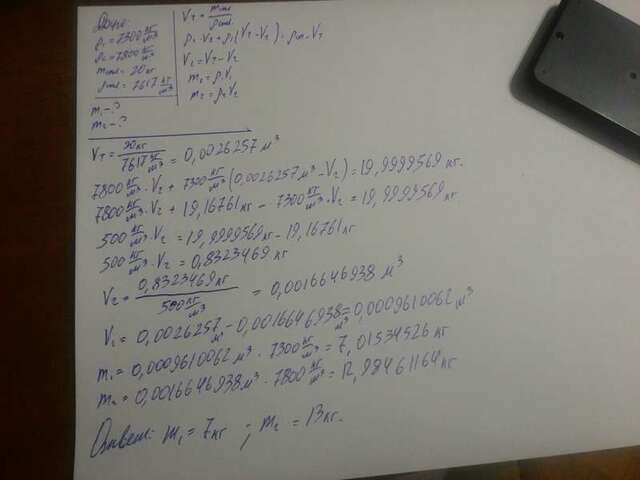 Дано:
ρ₁ = 7300 кг/м³
ρ₂ = 7800 кг/м³
mспл = 20 кг
ρспл = 7617 кг/м³
m₁ - ?
m₂ - ?
Vт = mспл/ρспл
ρ₂ · V₂ + ρ₁(Vт - V₂) = ρспл · Vт
V₁ = Vт - V₂
m₁ = ρ₁V₁
m₂ = ρ₂V₂
Vт = 20 кг/7617 кг/м³ = 0,0026257 м³
7800 кг/м³ · V₂ + 7300 кг/м³ (0,0026257 м³ - V₂) = 19,9999569 кг.
7800 кг/м³ · V₂ + 19,16761 кг - 7300 кг/м³ · V₂ = 19,9999569 кг.
500 кг/м³ · V₂ = 19,9999569 кг - 19,16761 кг
500 кг/м³ · V₂ = 0,8323469 кг
V₂ = 0,8323469 кг/500 кг/м³ = 0,0016646938 м³
V₁ = 0,0026257 м³ - 0,0016646938 м³ = 0,0009610062 м³
m₁ = 0,0009610062 м³ · 7300 кг/м³ = 7,01534526 кг
m₂ = 0,0016646938 м³ · 7800 кг/м³ = 12,98461164 кг
Ответ: m₁ = 7 кг ; m₂ = 13 кг.